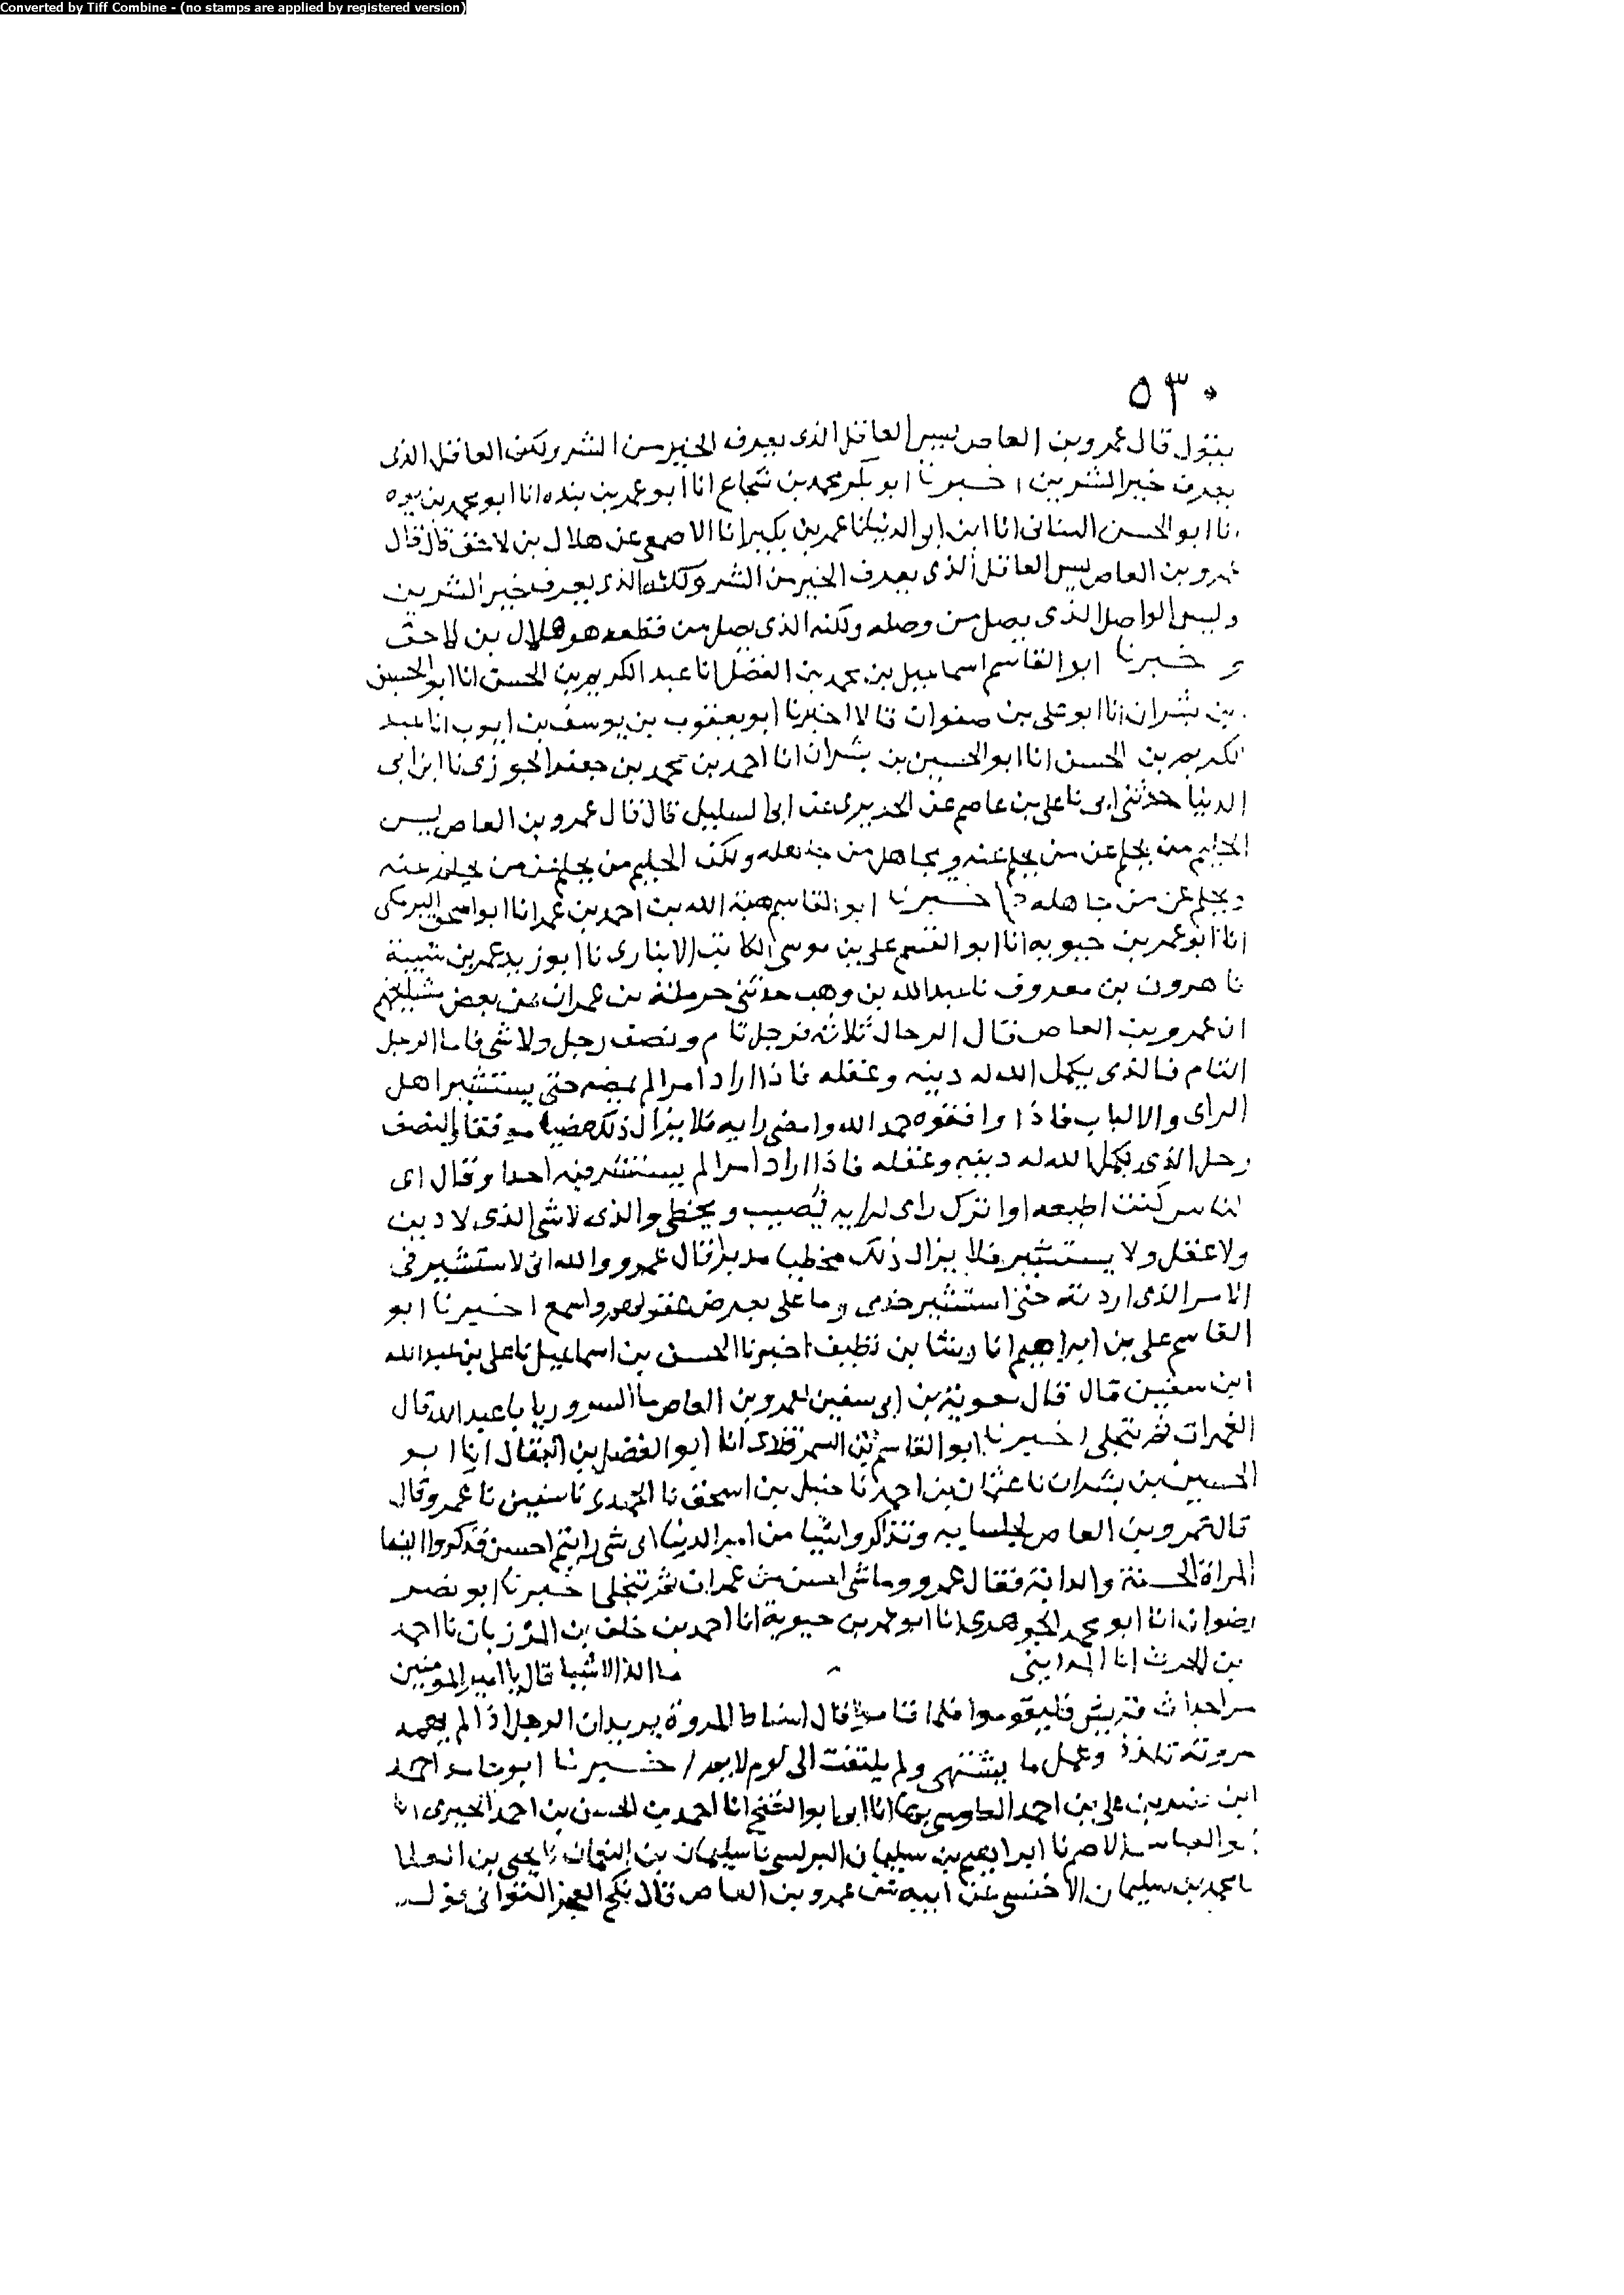 Converted by Tiff Combine - (no stamps are applied by registered version)
٥٣٠
يقول قال عمرو بن العاص ليس العاقل الذى يعرف الخير من الشر ولكن العاقل الذى
يعرف خير الشرين اخبرنا ابو بكر محمد بن شجاع انا ابو عمرو بن منده انا ابو محمد بن يوه
انا ابو الحسن اللبنانى انا ابن ابى الدنيا نا عمر بن بكير انا الاصمعى عن هلال بن لاحق قال قال
عمرو بن العاص ليس العاقل الذى يعرف الخير من الشر ولكنه الذى يعرف خير الشرين
وليس الواصل الذى يصل من وصله ولكنه الذى يصل من قطعه هو هلال بن لاحق
اخبرنا ابو القاسم اسماعيل بن محمد بن الفضل انا عبد الكريم بن الحسن انا ابو الحسين
بن بشران انا ابو على بن صفوان قالا اخبرنا ابو يعقوب بن يوسف بن ايوب انا عبد
الكريم بن الحسن انا ابو الحسين بن بشران انا احمد بن محمد بن جعفر الجوزى نا ابن ابى
الدنيا حدثنى ابى نا على بن عاصم عن الجريرى عن ابى السليل قال قال عمرو بن العاص ليس
الحليم من يحلم عن من يحلم عنه ويجاهل من جاهله ولكن الحليم من يحلم عن من يحلم عنه
ويحلم عن من جاهله اخبرنا ابو القاسم هبة الله بن احمد بن عمر انا ابو اسحق البرمكى
انا ابو عمر بن حيويه انا ابو القسم على بن موسى الكاتب الانبارى نا ابو زيد عمر بن شبيبة
نا هرون بن معروف نا عبد الله بن وهب حدثنى حرملة بن عمران عن بعض مشيختهم
ان عمرو بن العاص قال الرجال ثلاثة فرجل تام ونصف رجل ولا شى فاما الرجل
التام فالذى يكمل الله له دينه وعقله فاذا اراد امرا لم يمضه حتى يستشير اهل
الراى والالباب فاذا وافقوه حمد الله وامضى رايه فلا يزال ذلك مضيا موفقا والنصف
رجل الذى يكمل الله له دينه وعقله فاذا اراد امرا لم يستشر فيه احدا وقال اى
الناس كنت اطيعه او اترك راى لرايه فيصيب ويخطى والذى لا شى الذى لا دين
ولا عقل ولا يستشير فلا يزال ذلك مخطيا مدبرا فقال عمرو والله انى لاستشير فى
الامر الذى اردته حتى استشير خدمى وما على يعرض عقولهم واسمع اخبرنا ابو
القاسم على بن ابراهيم انا رشا بن نظيف اخبرنا الحسن بن اسماعيل نا على بن عبد الله
ابن سفين قال قال معوية بن ابى سفين لعمرو بن العاص ما السرور يا با عبد الله قال
الغمرات ثم تنجلى اخبرنا ابو القاسم بن السمرقندى انا ابو الفضل بن البقال انا ابو
الحسين بن بشران نا عثمان بن احمد نا حنبل بن اسحق نا الحميدى نا سفين نا عمرو قال
قال عمرو بن العاص لجلسايه وتذاكروا شيا من امر الدنيا اى شى رايتم احسن فذكروا النعما
المراة الحسنة والدابة فقال عمرو وما شى احسن من غمرات ثم تنجلى اخبرنا ابو نصر
رضوان انا ابو محمد الجوهرى انا ابو عمر بن حيوية انا احمد بن خلف بن المرزبان نا احمد
بن الحرث انا المداينى ما الذ الاشيا قال يا امير المومنين
مر احداث قريش فليقوموا فلما قاموا قال اسقاط المروة يريد ان الرجل اذا لم يهمه
مروته تلذذ وعمل ما يشتهى ولم يلتفت الى لوم لايم اخبرنا ابو حامد احمد
ابن نصر بن على بن احمد الطوسى بها انا ابو الفتح انا احمد بن الحسن بن احمد الحيرى انا
ابو العباس الاصم نا ابراهيم بن سليمان البرلسى نا سليمان بن النعمان نا يحيى بن العلا
نا محمد بن سليمان الاخنسى عن ابيه عن عمرو بن العاص قال نكح العجز التوانى